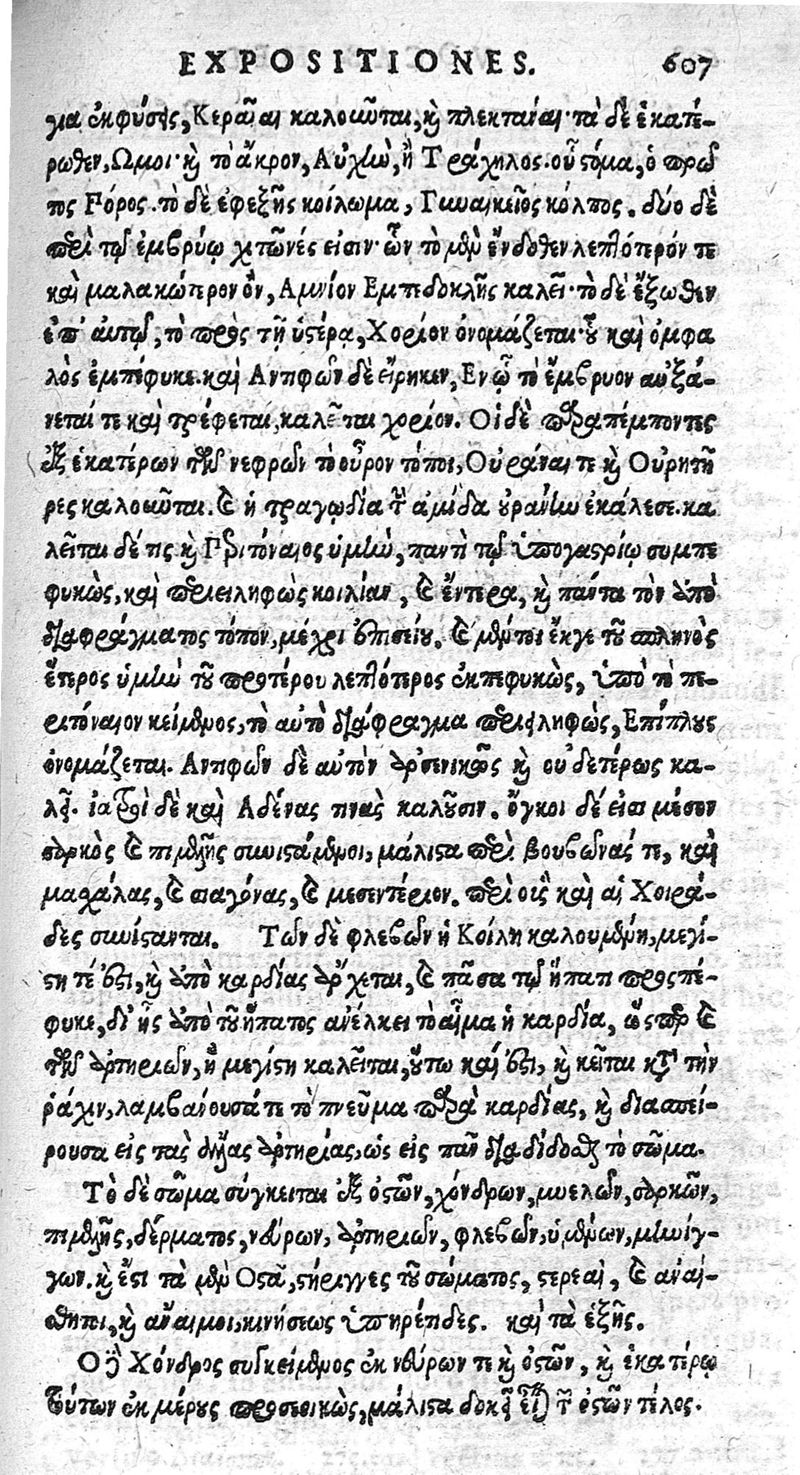 EXPOSITIONES. 607
για ἐκφύσεις, Κεραῖαι καλοῦνται, καὶ πλεκτάναι· τὰ δὲ ἑκατέ-
ρωθεν, Ωμοι· καὶ τὸ ἄκρον, Αὐχὴν, ἢ Τράχηλος. οὗ στόμα, ὁ πρῶ
τος Πόρος. τὸ δὲ ἐφεξῆς κοίλωμα, Γυναικεῖος κόλπος. δύο δὲ
περὶ τῷ ἐμβρύῳ χιτῶνές εἰσιν· ὧν τὸ μὲν ἔνδοθεν λεπτότερόν τε
καὶ μαλακώτερον ὂν, Αμνίον Εμπεδοκλῆς καλεῖ· τὸ δὲ ἔξωθεν
ἐπ' αὐτῷ, τὸ πρὸς τῇ ὑστέρᾳ, Χορίον ὀνομάζεται· ᾧ καὶ ὀμφα
λὸς ἐμπέφυκε. καὶ Αντιφῶν δὲ εἴρηκεν, Εν ᾧ τὸ ἔμβρυον αὐξά-
νεταί τε καὶ τρέφεται, καλεῖται χορίον. Οἱ δὲ παραπέμποντες
ἐξ ἑκατέρων τῶν νεφρῶν τὸ οὖρον τόποι, Οὐράναι τε καὶ Οὐρητῆ
ρες καλοῦνται. καὶ ἡ τραγῳδία τὴν ἀμίδα οὐράνην ἐκάλεσε. κα
λεῖται δέ τις καὶ Περιτόναιος ὑμὴν, παντὶ τῷ ὑπογαστρίῳ συμπε
φυκὼς, καὶ περιειληφὼς κοιλίαν, καὶ ἔντερα, καὶ πάντα τὸν ἀπὸ
διαφράγματος τόπον, μέχρι ἐπισείου. καὶ μέντοι ἔκγε τοῦ σπληνὸς
ἕτερος ὑμὴν τοῦ προτέρου λεπτότερος ἐκπεφυκὼς, ὑπὸ τὸ πε-
ριτόναιον κείμενος, τὸ αὐτὸ διάφραγμα περιειληφὼς, Επίπλους
ὀνομάζεται. Αντιφῶν δὲ αὐτὸν ἀρσενικῶς καὶ οὐδετέρως κα-
λεῖ. ἰατροὶ δὲ καὶ Αδένας τινὰς καλοῦσιν. ὄγκοι δέ εἰσι μέσον
σαρκὸς καὶ πιμελῆς συνιστάμενοι, μάλιστα περὶ βουβῶνάς τε, καὶ
μαχάλας, καὶ σιαγόνας, καὶ μεσεντέριον. περὶ οἷς καὶ αἱ Χοιρά-
δες συνίστανται. Τῶν δὲ φλεβῶν ἡ Κοίλη καλουμένη, μεγί-
στη τέ ἐστι, καὶ ἀπὸ καρδίας ἄρχεται, καὶ πᾶσα τῷ ἥπατι προσπέ-
φυκε, δι' ἧς ἀπὸ τοῦ ἥπατος ἀνέλκει τὸ αἷμα ἡ καρδία, ὥσπερ καὶ
τῶν ἀρτηριῶν, ἣ μεγίστη καλεῖται, οὕτω καί ἐστι, καὶ κεῖται κατὰ τὴν
ῥάχιν, λαμβάνουσά τε τὸ πνεῦμα παρὰ καρδίας, καὶ διασπεί-
ρουσα εἰς τὰς ἄλλας ἀρτηρίας, ὡς εἰς πᾶν διαδίδοσθαι τὸ σῶμα.
Τὸ δὲ σῶμα σύγκειται ἐξ ὀστῶν, χόνδρων, μυελῶν, σαρκῶν,
πιμελῆς, δέρματος, νεύρων, ἀρτηριῶν, φλεβῶν, ὑμένων, μηνίγ-
γων. καὶ ἔστι τὰ μὲν Οστᾶ, στήριγγες τοῦ σώματος, στερεαὶ, καὶ ἀναί-
σθητοι, καὶ ἄναιμοι, κινήσεως ὑπηρέτιδες. καὶ τὰ ἑξῆς.
Ο δὲ Χόνδρος συγκείμενος ἐκ νεύρων τε καὶ ὀστῶν, καὶ ἑκατέρῳ
τούτων ἐκ μέρους προσεοικὼς, μάλιστα δοκεῖ εἶναι τῶν ὀστῶν τέλος.